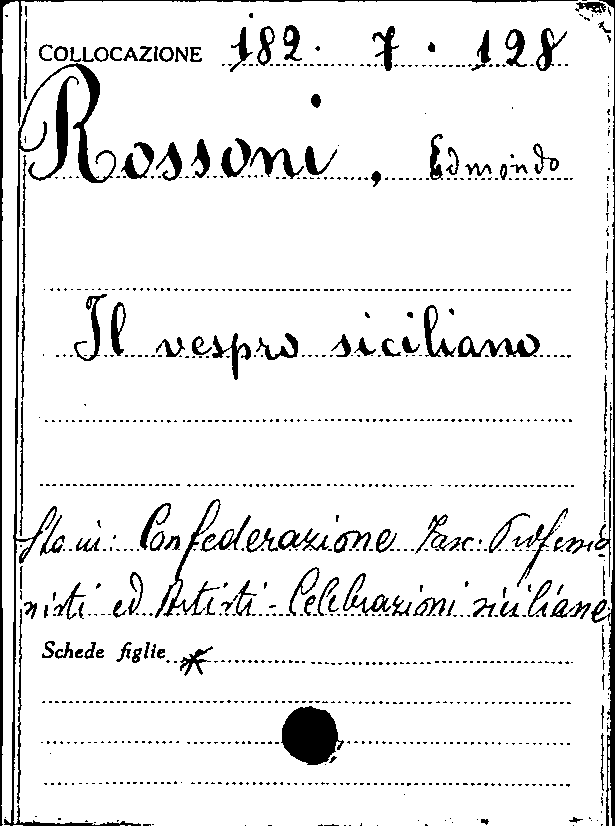 COLLOCAZIONE 182. 7. 128
Rossoni, Edmondo
Il vespro siciliano
Sta in: Confederazione Fasc. Professio
nisti ed Artisti - Celebrazioni siciliane
Schede figlie *